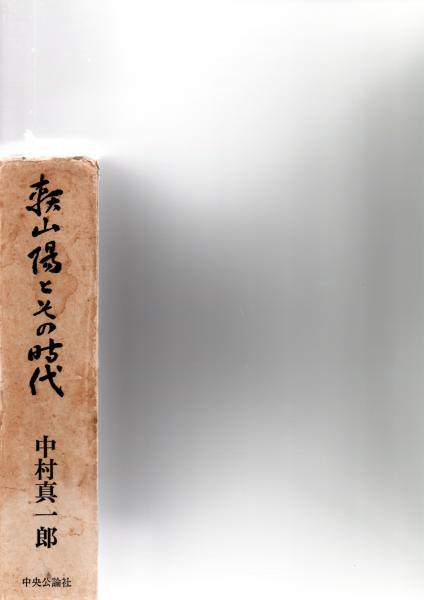 頼山陽とその時代
中村真一郎
中央公論社